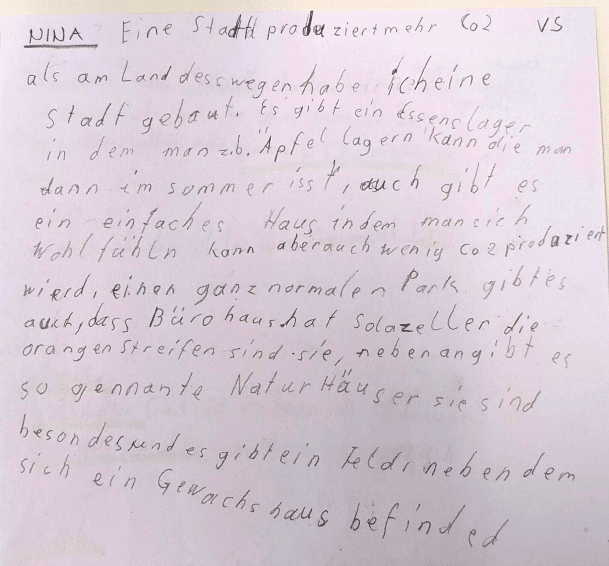 NINA Eine Stadt produziert mehr Co2 VS
als am Land desswegen habe ich eine
Stadt gebaut. Es gibt ein Essenslager
in dem man z.b. Äpfel lagern kann die man
dann im sommer isst, auch gibt es
ein einfaches Haus indem man sich
wohlfühln kann aber auch wenig co2 produziert
wierd, einen ganz normalen Park gibt es
auch, dass Bürohaus hat Solazeller die
orangen Streifen sind sie, nebenan gibt es
so gennante Natur Häuser sie sind
besondes und es gibt ein Feld, neben dem
sich ein Gewachshaus befinded